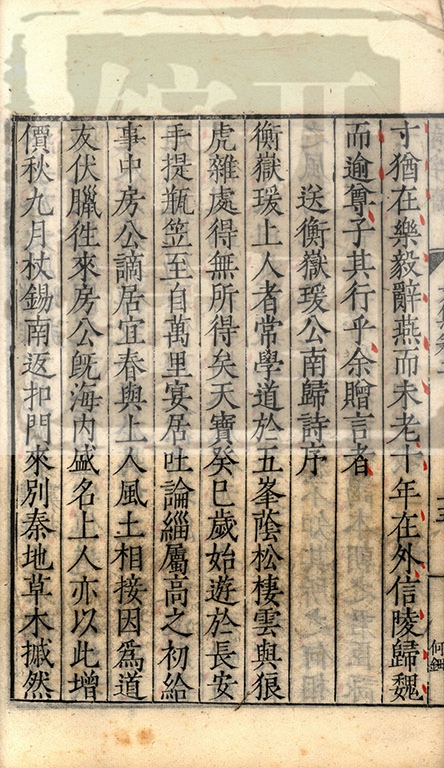 寸猶在樂毅辭燕而未老十年在外信陵歸魏
而逾尊子其行乎余贈言者
送衡嶽瑗公南歸詩序
衡嶽瑗上人者常學道於五峯蔭松棲雲與狼
虎雜處得無所得矣天寶癸巳歲始遊於長安
手提瓶笠至自萬里宴居吐論緇屬高之初給
事中房公謫居宜春與上人風土相接因爲道
友伏臘徃來房公旣海内盛名上人亦以此增
價秋九月杖錫南返扣門來別秦地草木摵然